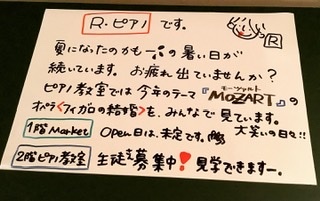 R・ピアノ です。
R
夏になったのかも…の暑い日が
続いています。お疲れ出ていませんか？
ピアノ教室では今年のテーマ『MOZART』の
モーツァルト
オペラ＜フィガロの結婚＞を、みんなで見ています。
大笑いの日々!!
1階 Market Open日は、未定です。
2階ピアノ教室 生徒さ募集中！見学できますー。